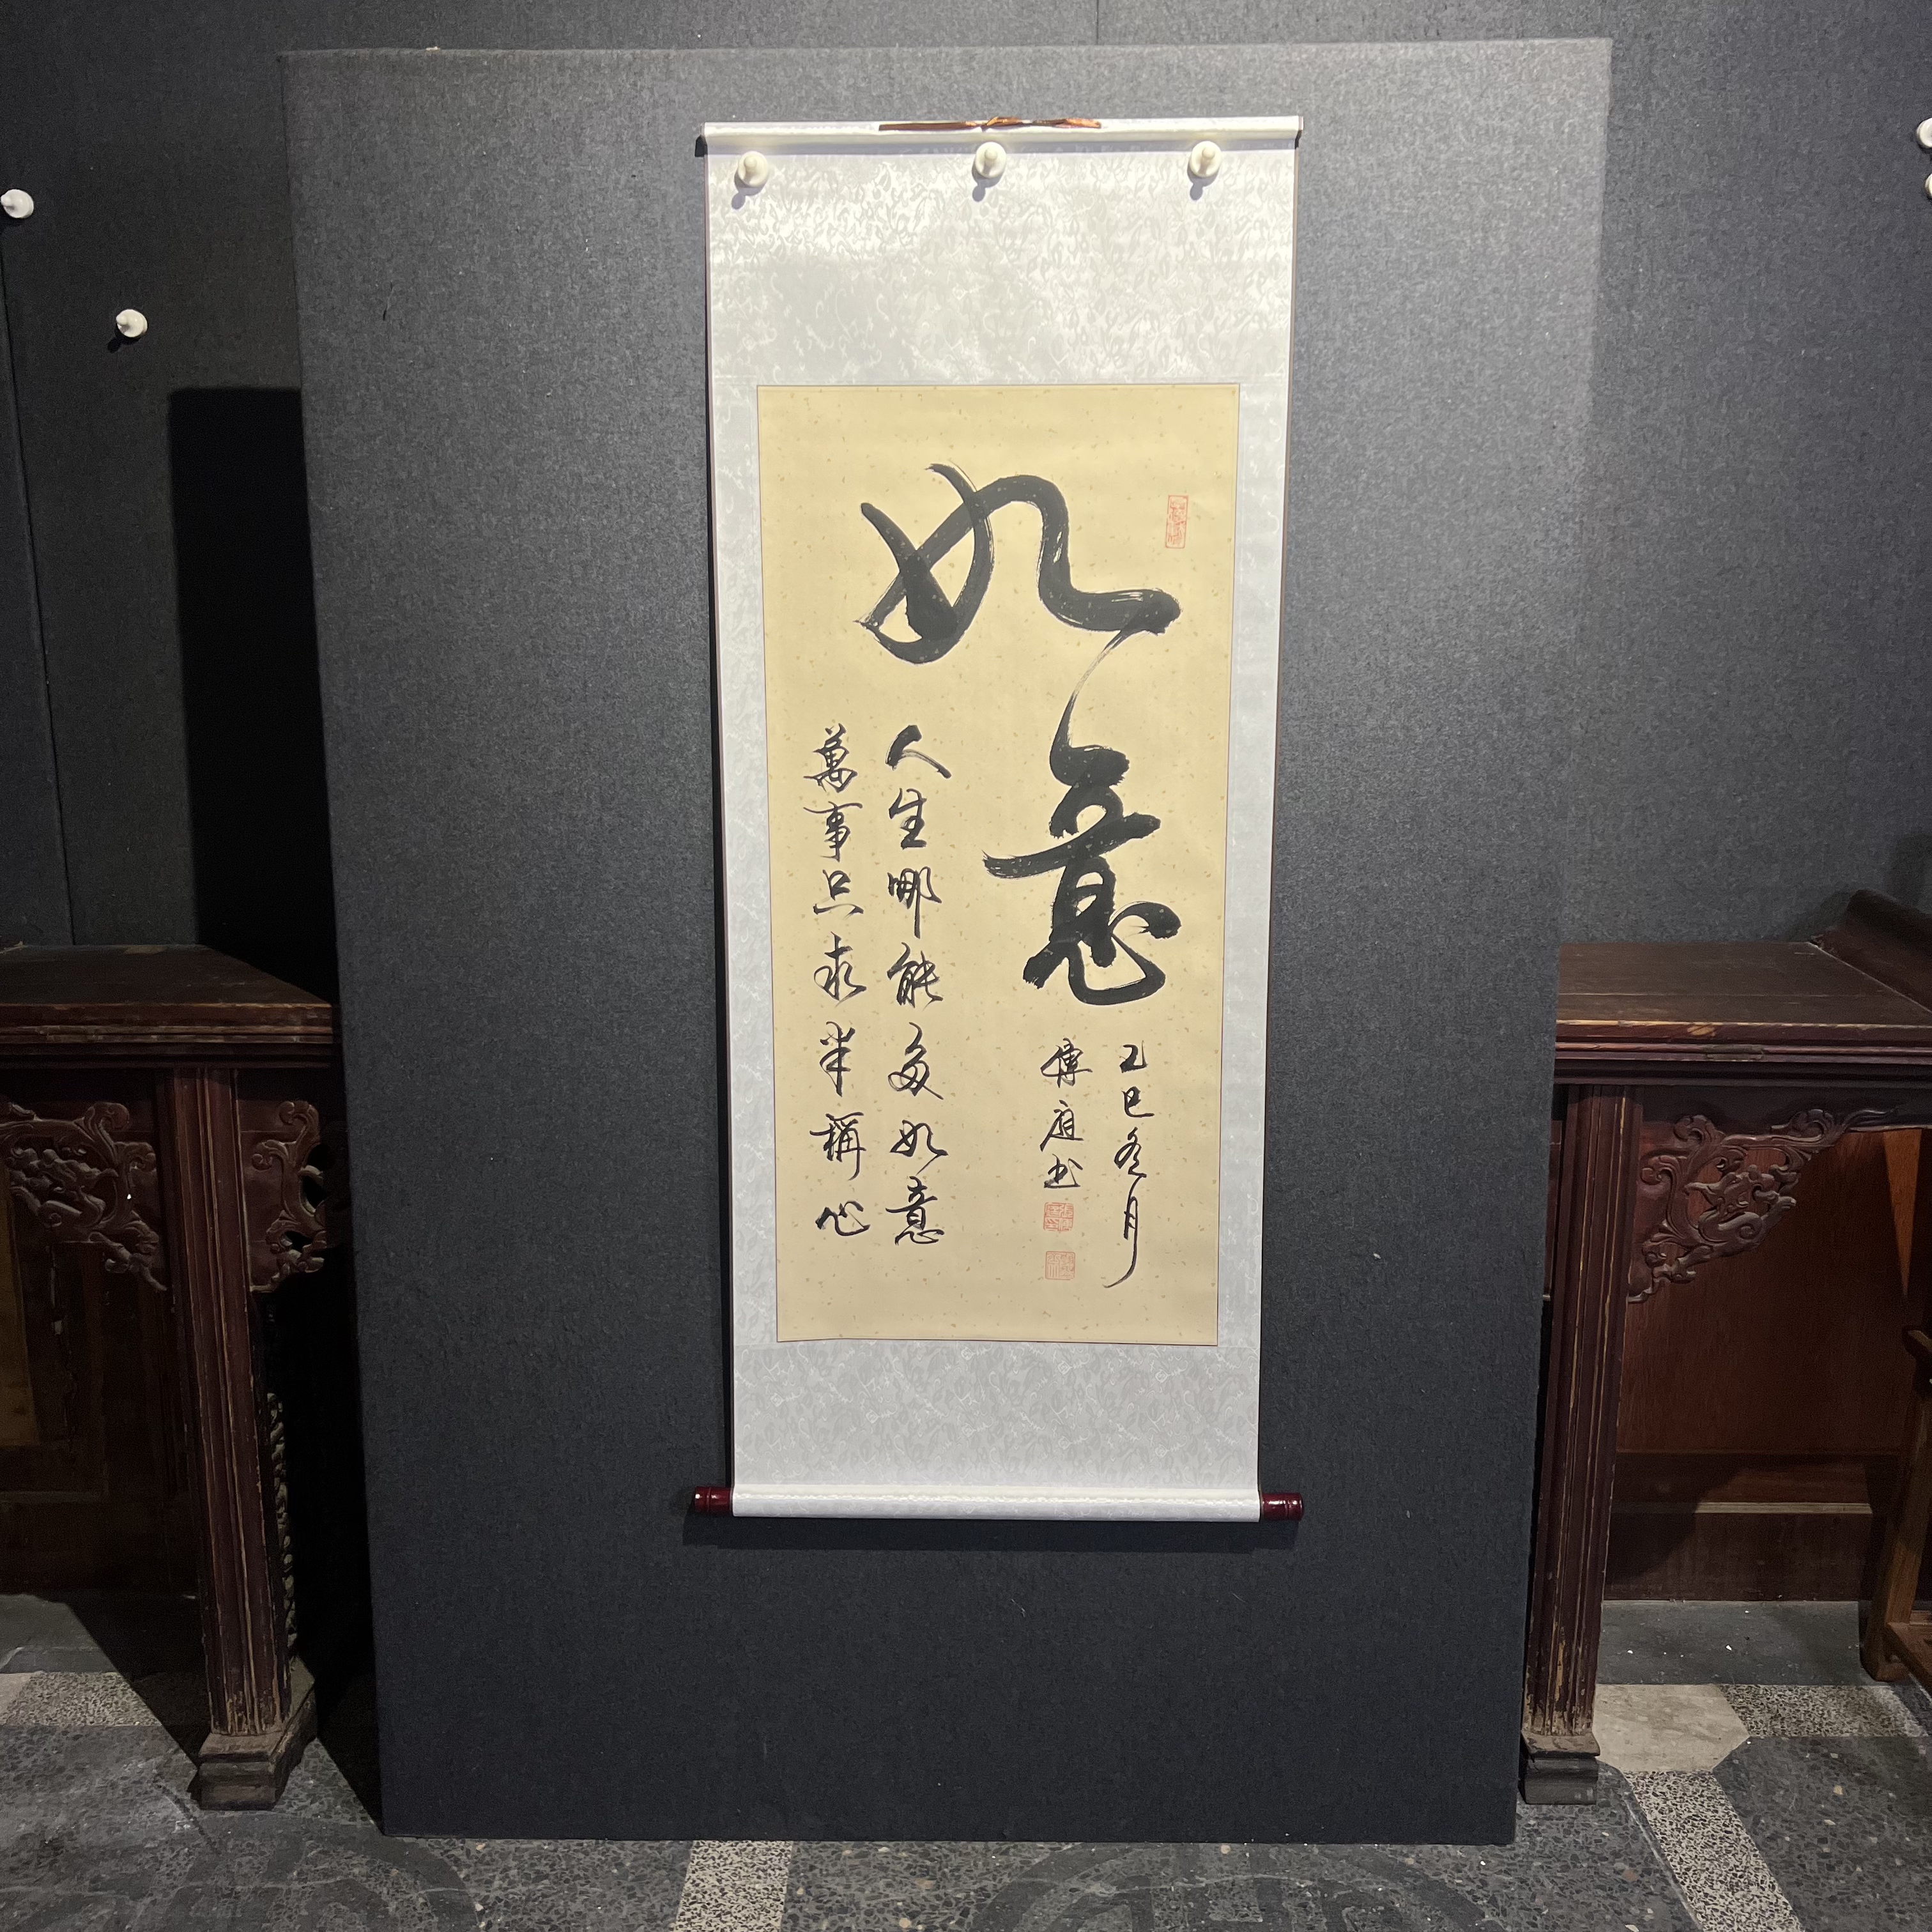 如意
乙巳冬月
傳庭书
人生哪能多如意
萬事只求半稱心